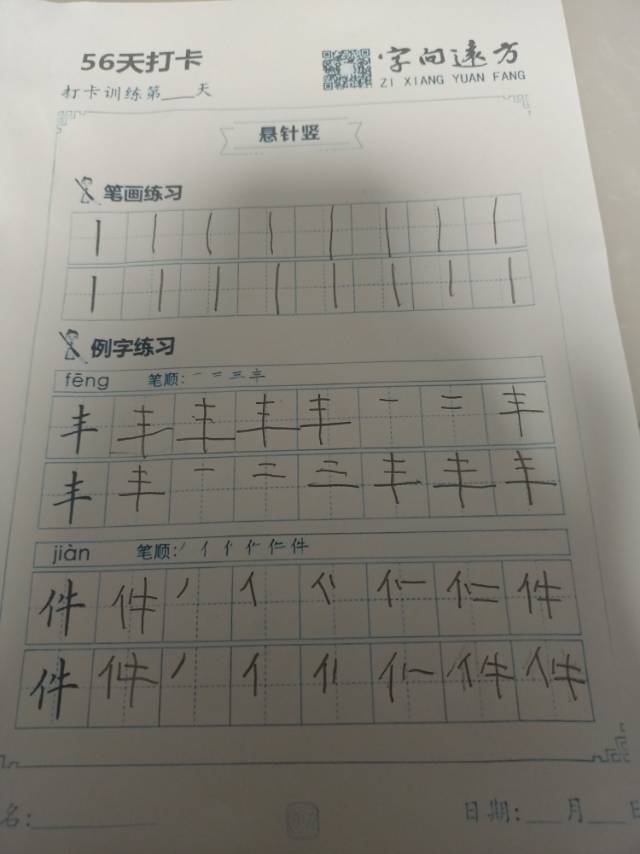 56天打卡
字向远方
ZI XIANG YUAN FANG
打卡训练第___天
悬针竖
笔画练习
丨 丨 丨 丨 丨 丨 丨 丨
丨 丨 丨 丨 丨 丨 丨 丨
例字练习
fēng 笔顺: 一 二 三 丰
丰 丰 丰 丰 丰 一 二 丰
丰 丰 一 二 三 丰 丰 丰
jiàn 笔顺: 丿 亻 件
件 件 丿 亻 件
件 件 丿 亻 件 件
名:________
日期:___月___日